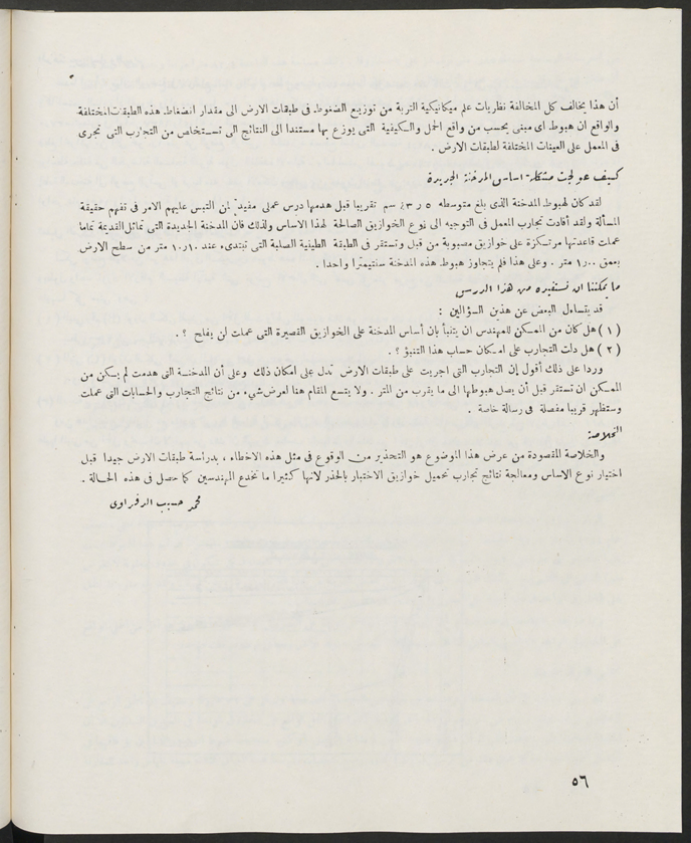 أن هذا يخالف كل المخالفة نظريات علم ميكانيكية التربة من توزيع الضغوط فى طبقات الارض الى مقدار انضغاط هذه الطبقات المختلفة
والواقع ان هبوط اى مبنى يحسب من واقع الحمل والكيفية التى يوزع بها مستندا الى النتائج التى تستخلص من التجارب التى تجرى
فى المعمل على العينات المختلفة لطبقات الارض .
كيف عولجت مشكلة اساس المدخنة الجديدة
لقد كان لهبوط المدخنة الذى بلغ متوسطه ٤٣٫٥ سم تقريبا قبل هدمها درس عملى مفيد لمن التبس عليهم الامر فى تفهم حقيقة
المسألة ولقد أفادت تجارب المعمل فى التوجيه الى نوع الخوازيق الصالحة لهذا الاساس ولذلك فأن المدخنة الجديدة التى تماثل القديمة تماما
عملت قاعدتها مرتكزة على خوازيق مصبوبة من قبل وتستقر فى الطبقة الطينية الصلبة التى تبتدىء عند ١٠٫١٠ متر من سطح الارض
بعمق ١٫٠٠ متر . وعلى هذا فلم يتجاوز هبوط هذه المدخنة سنتيمترا واحدا .
ما يمكننا ان نستفيده من هذا الدرس
قد يتساءل البعض عن هذين السؤالين :
( ١ ) هل كان من الممكن للمهندس ان يتنبأ بان أساس المدخنة على الخوازيق القصيرة التى عملت لن يفلح ؟ .
( ٢ ) هل دلت التجارب على امكان حساب هذا التنبؤ ؟ .
وردا على ذلك أقول إن التجارب التى اجريت على طبقات الارض تدل على امكان ذلك وعلى أن المدخنة التى هدمت لم يكن من
الممكن ان تستقر قبل أن يصل هبوطها الى ما يقرب من المتر . ولا يتسع المقام هنا لعرض شىء من نتائج التجارب والحسابات التى عملت
وستظهر قريبا مفصلة فى رسالة خاصة .
الخلاصة
والخلاصة المقصودة من عرض هذا الموضوع هو التحذير من الوقوع فى مثل هذه الاخطاء ، بدراسة طبقات الارض جيدا قبل
اختيار نوع الاساس ومعالجة نتائج تجارب تحميل خوازيق الاختبار بالحذر لانها كثيرا ما تخدع المهندسين كما حصل فى هذه الحالة .
محمد حسيب الزفراوى
٥٦